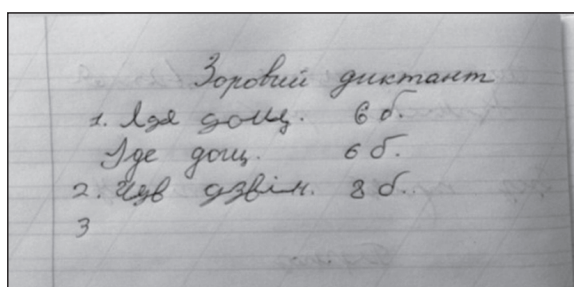 Зоровий диктант
1. Іде дощ. 6 б.
Іде дощ. 6 б.
2. Чув дзвін. 8 б.
3